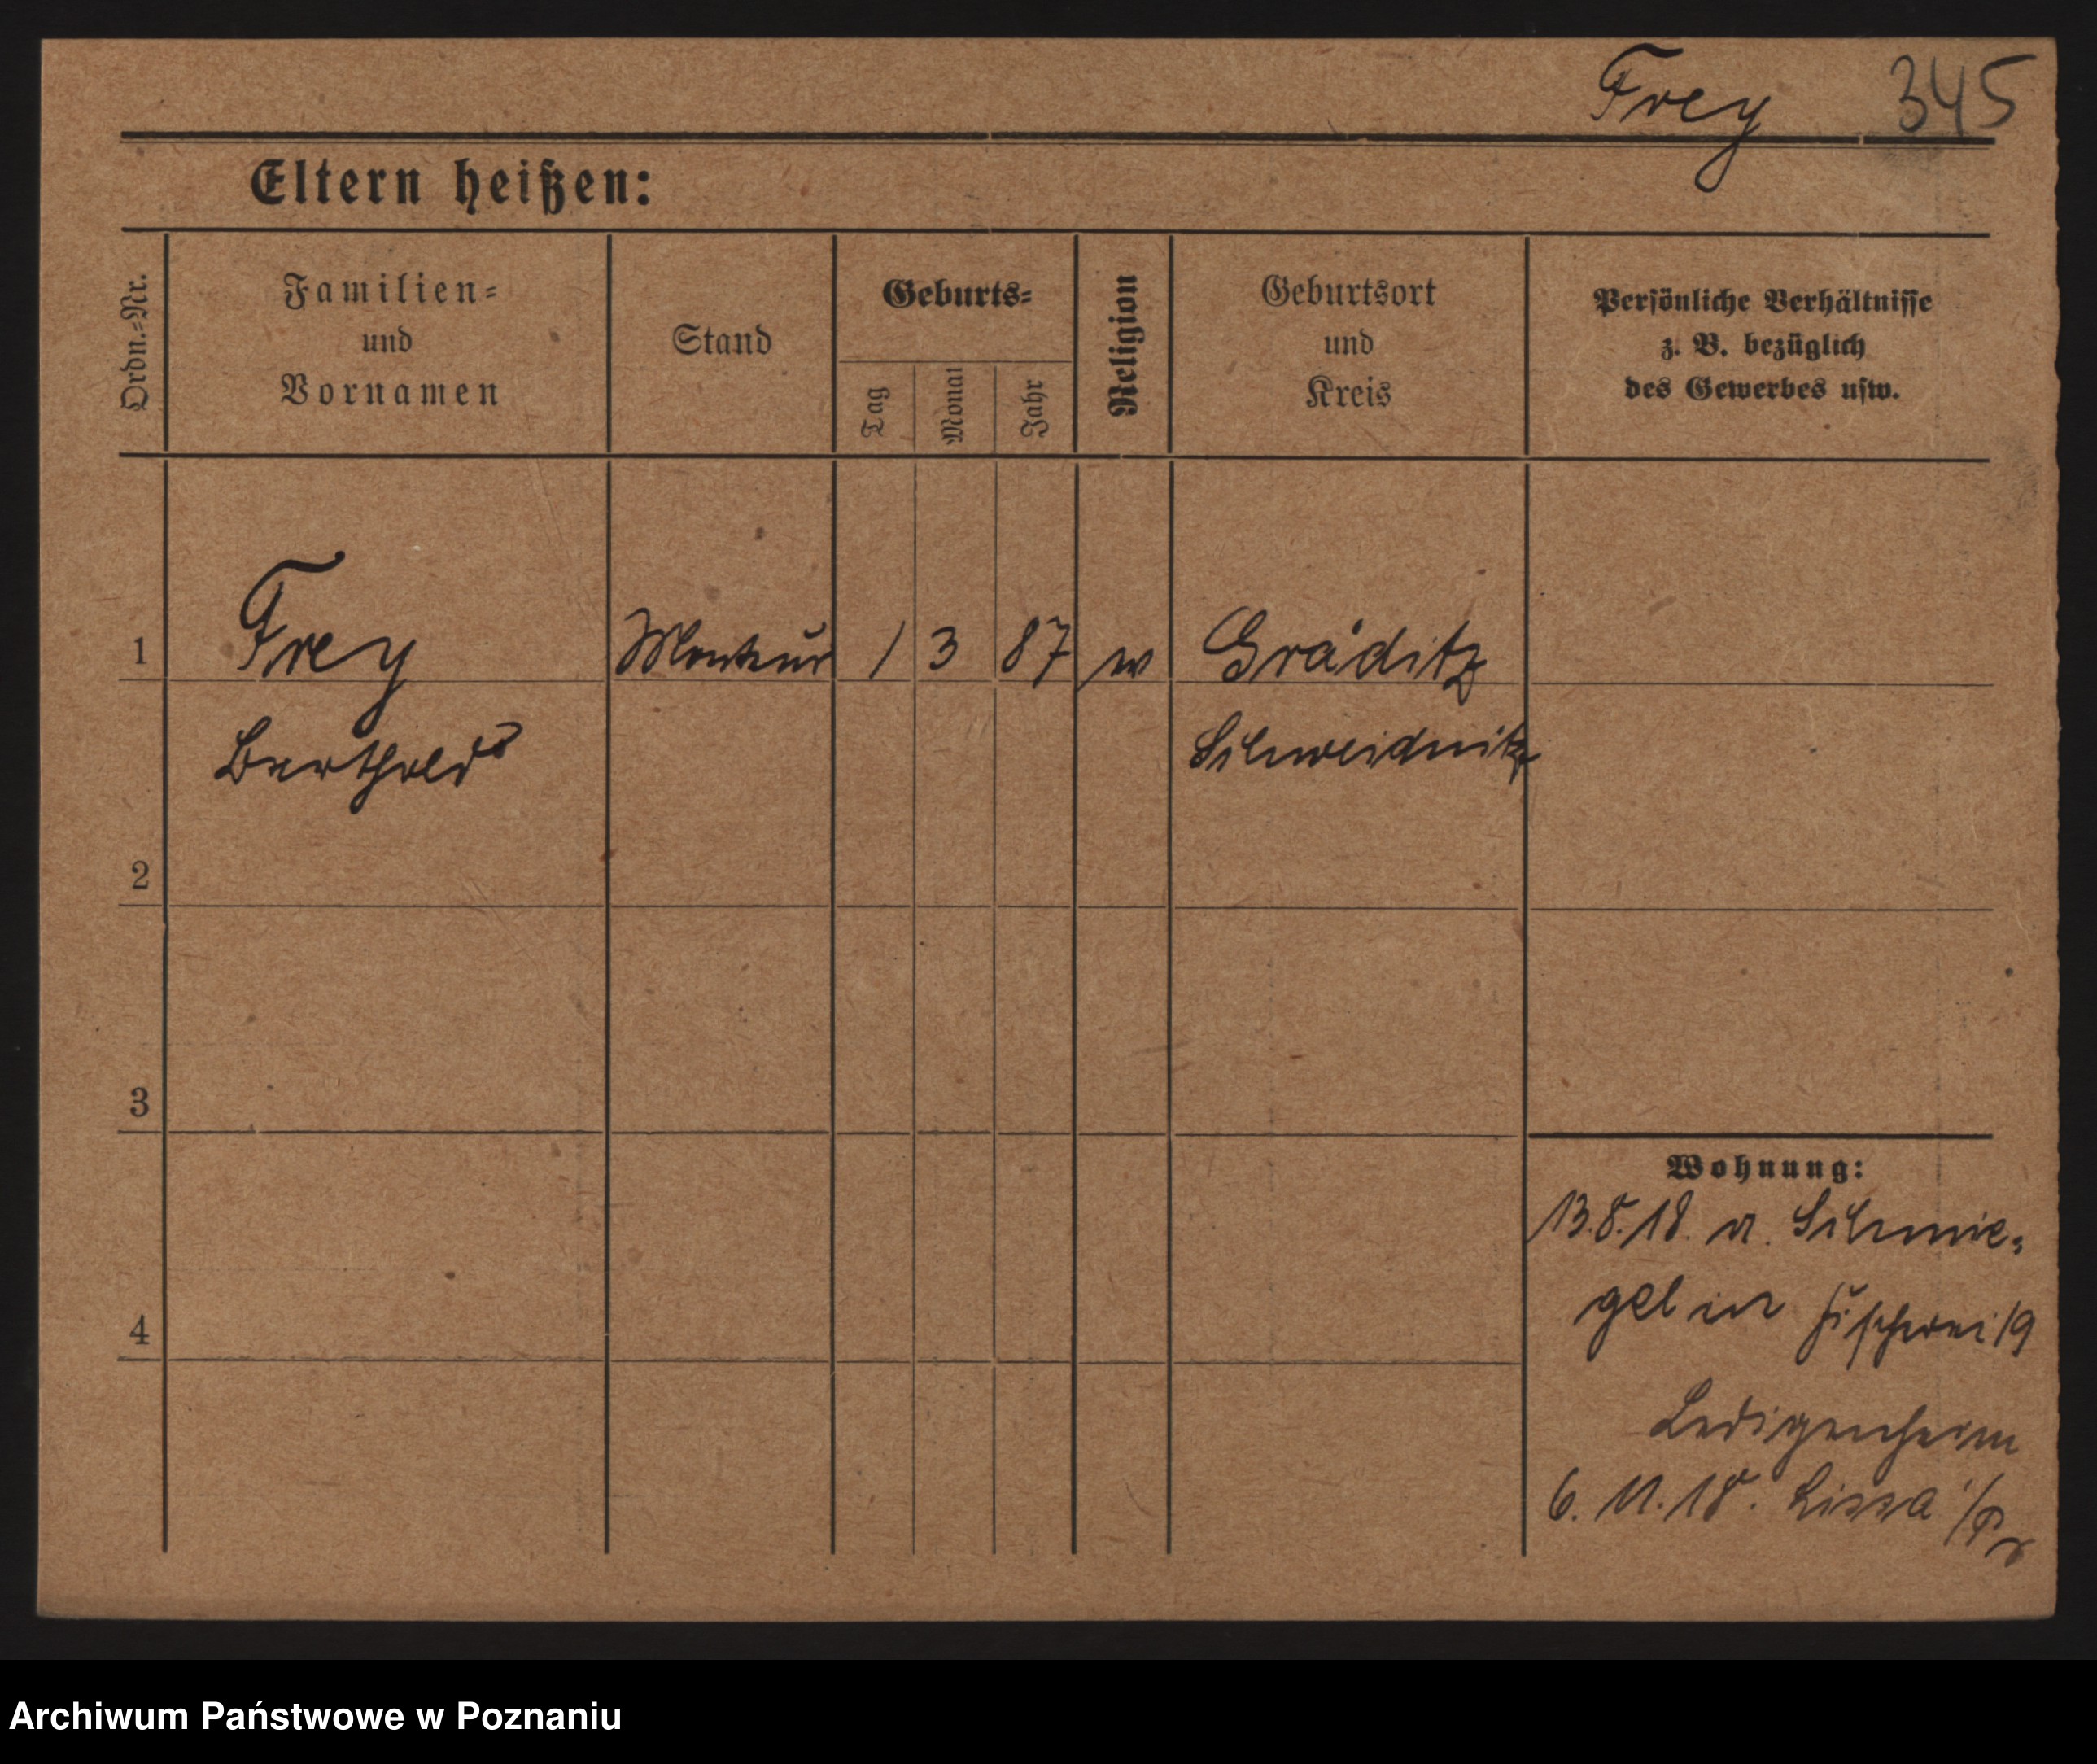 Frey 345
Eltern heißen:
Ordn.-Nr.
Familien-
und
Vornamen
Stand
Geburts-
Tag
Monat
Jahr
Religion
Geburtsort
und
Kreis
Persönliche Verhältnisse
z. B. bezüglich
des Gewerbes usw.
1 Frey Monteur 1 3 87 Gräditz
Berthold Schweidnitz
2
3
4
Wohnung:
13.8.18. a. Schmie-
gel in Fischerei 19
Ledigenheim
6. 11. 18. Lissa i/Pr
Archiwum Państwowe w Poznaniu